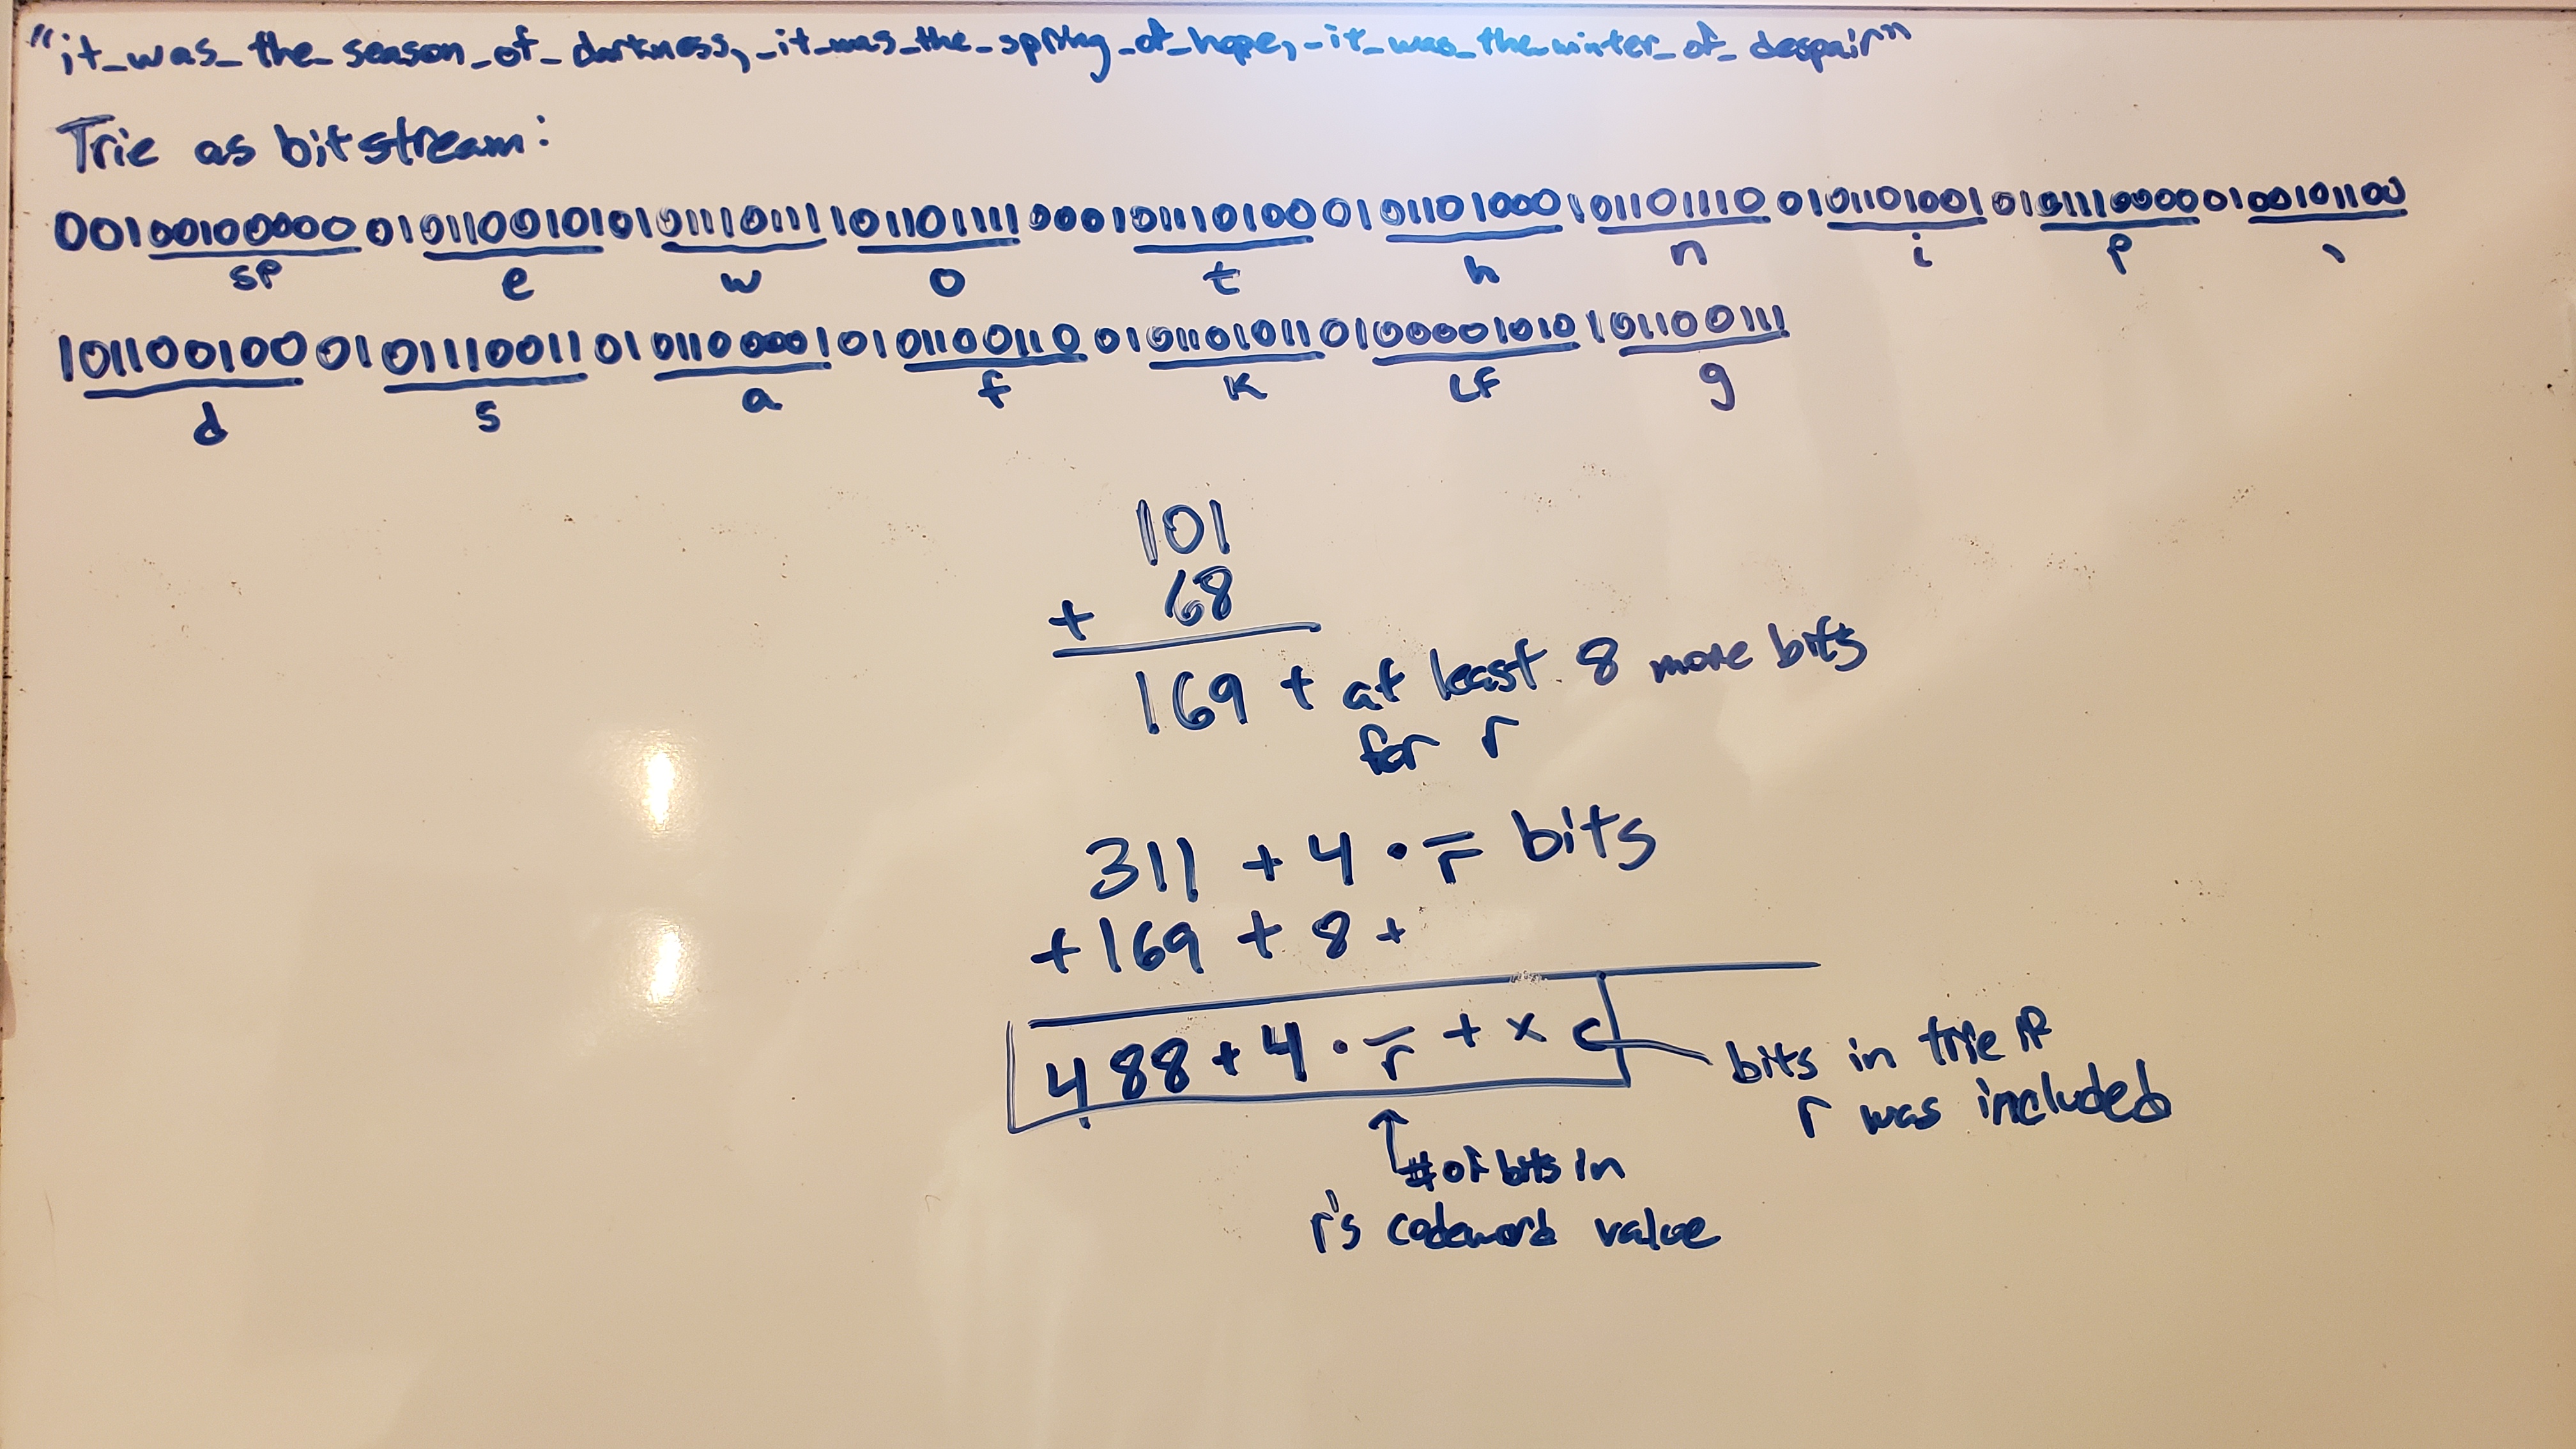 "it_was_the_season_of_darkness,_it_was_the_spring_of_hope,_it_was_the_winter_of_despair"
Trie as bitstream:
00100100000010110010101011101111011011110001011101000101101000101101110010110100101011100000100101100
SP e w o t h n i p ,
10110010001011100110101100001010110011001011010110100001010101100111
d s a f k LF g
101
+ 68
169 + at least 8 more bits
for r
311 + 4 · r̅ bits
+169 + 8 +
488 + 4 · r̅ + x
bits in trie if
r was included
# of bits in
r's codeword value